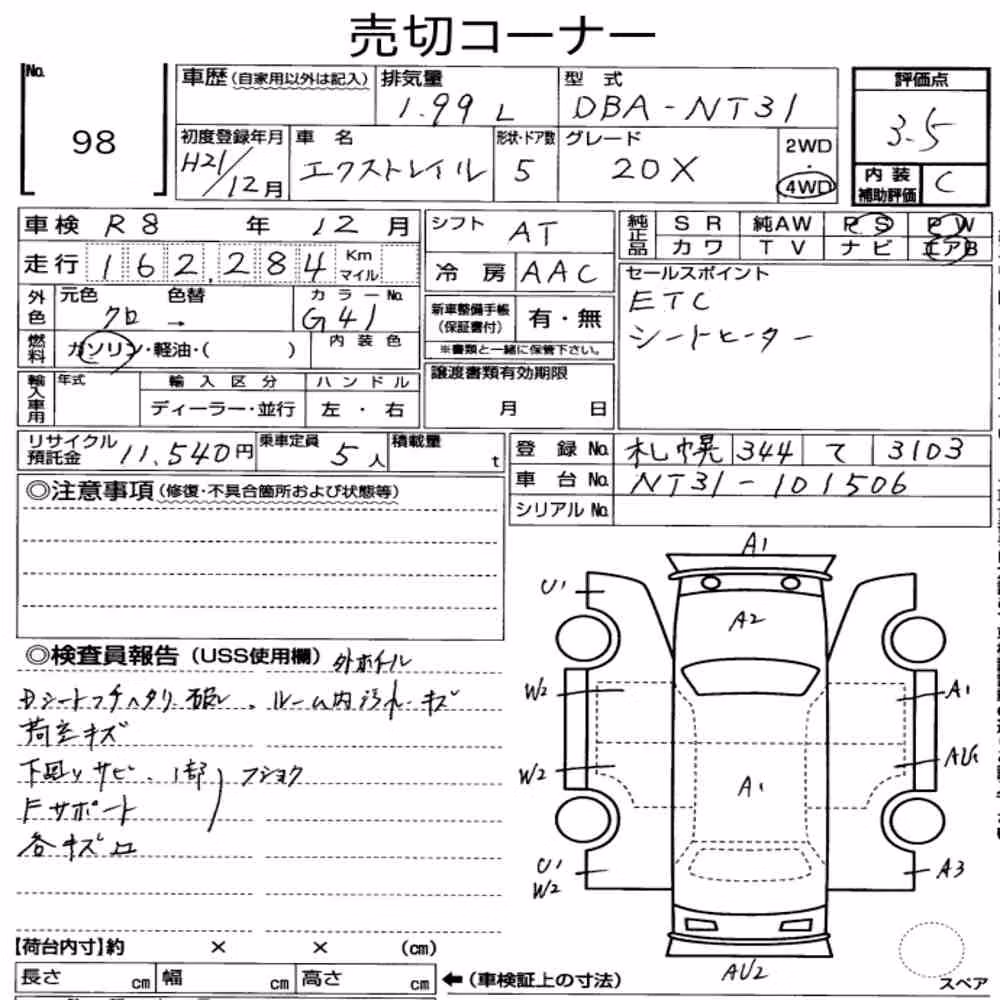 売切コーナー
No. 98
車歴(自家用以外は記入) 排気量 1.99 L 型式 DBA-NT31
初度登録年月 H21/12月 車名 エクストレイル 形状・ドア数 5 グレード 20X 2WD・4WD
評価点 3.5
内装補助評価 C
車検 R8年 12月
走行 162,284 Km マイル
外色 元色 クロ → 色替 カラーNo. G41
燃料 ガソリン・軽油・( ) 内装色
輸入車用 年式 輸入区分 ディーラー・並行 ハンドル 左・右
シフト AT
冷房 AAC
新車整備手帳(保証書付) 有・無
※書類と一緒に保管下さい。
譲渡書類有効期限 月 日
純正品 SR 純AW PS PW
カワ TV ナビ エアB
セールスポイント
ETC
シートヒーター
リサイクル預託金 11,540円 乗車定員 5人 積載量 t
登録No. 札幌 344 て 3103
車台No. NT31-101506
シリアルNo.
◎注意事項(修復・不具合箇所および状態等)
◎検査員報告(USS使用欄) 外ホイル
Dシートフチヘタリ 破レ、ルーム内汚れ・キズ
荷室キズ
下回りサビ、1部フショク
Fサポート
各キズ凹
A1
U1
A2
W2
A1
W2
AU1
A1
U1
W2
A3
AU2
スペア
【荷台内寸】約 × × (cm)
長さ cm 幅 cm 高さ cm ←(車検証上の寸法)